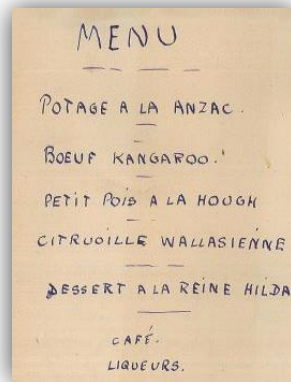 MENU
POTAGE A LA ANZAC.
BOEUF KANGAROO.'
PETIT POIS A LA HOUGH
CITRUOILLE WALLASIENNE
DESSERT A LA REINE HILDA
CAFÉ.
LIQUEURS.